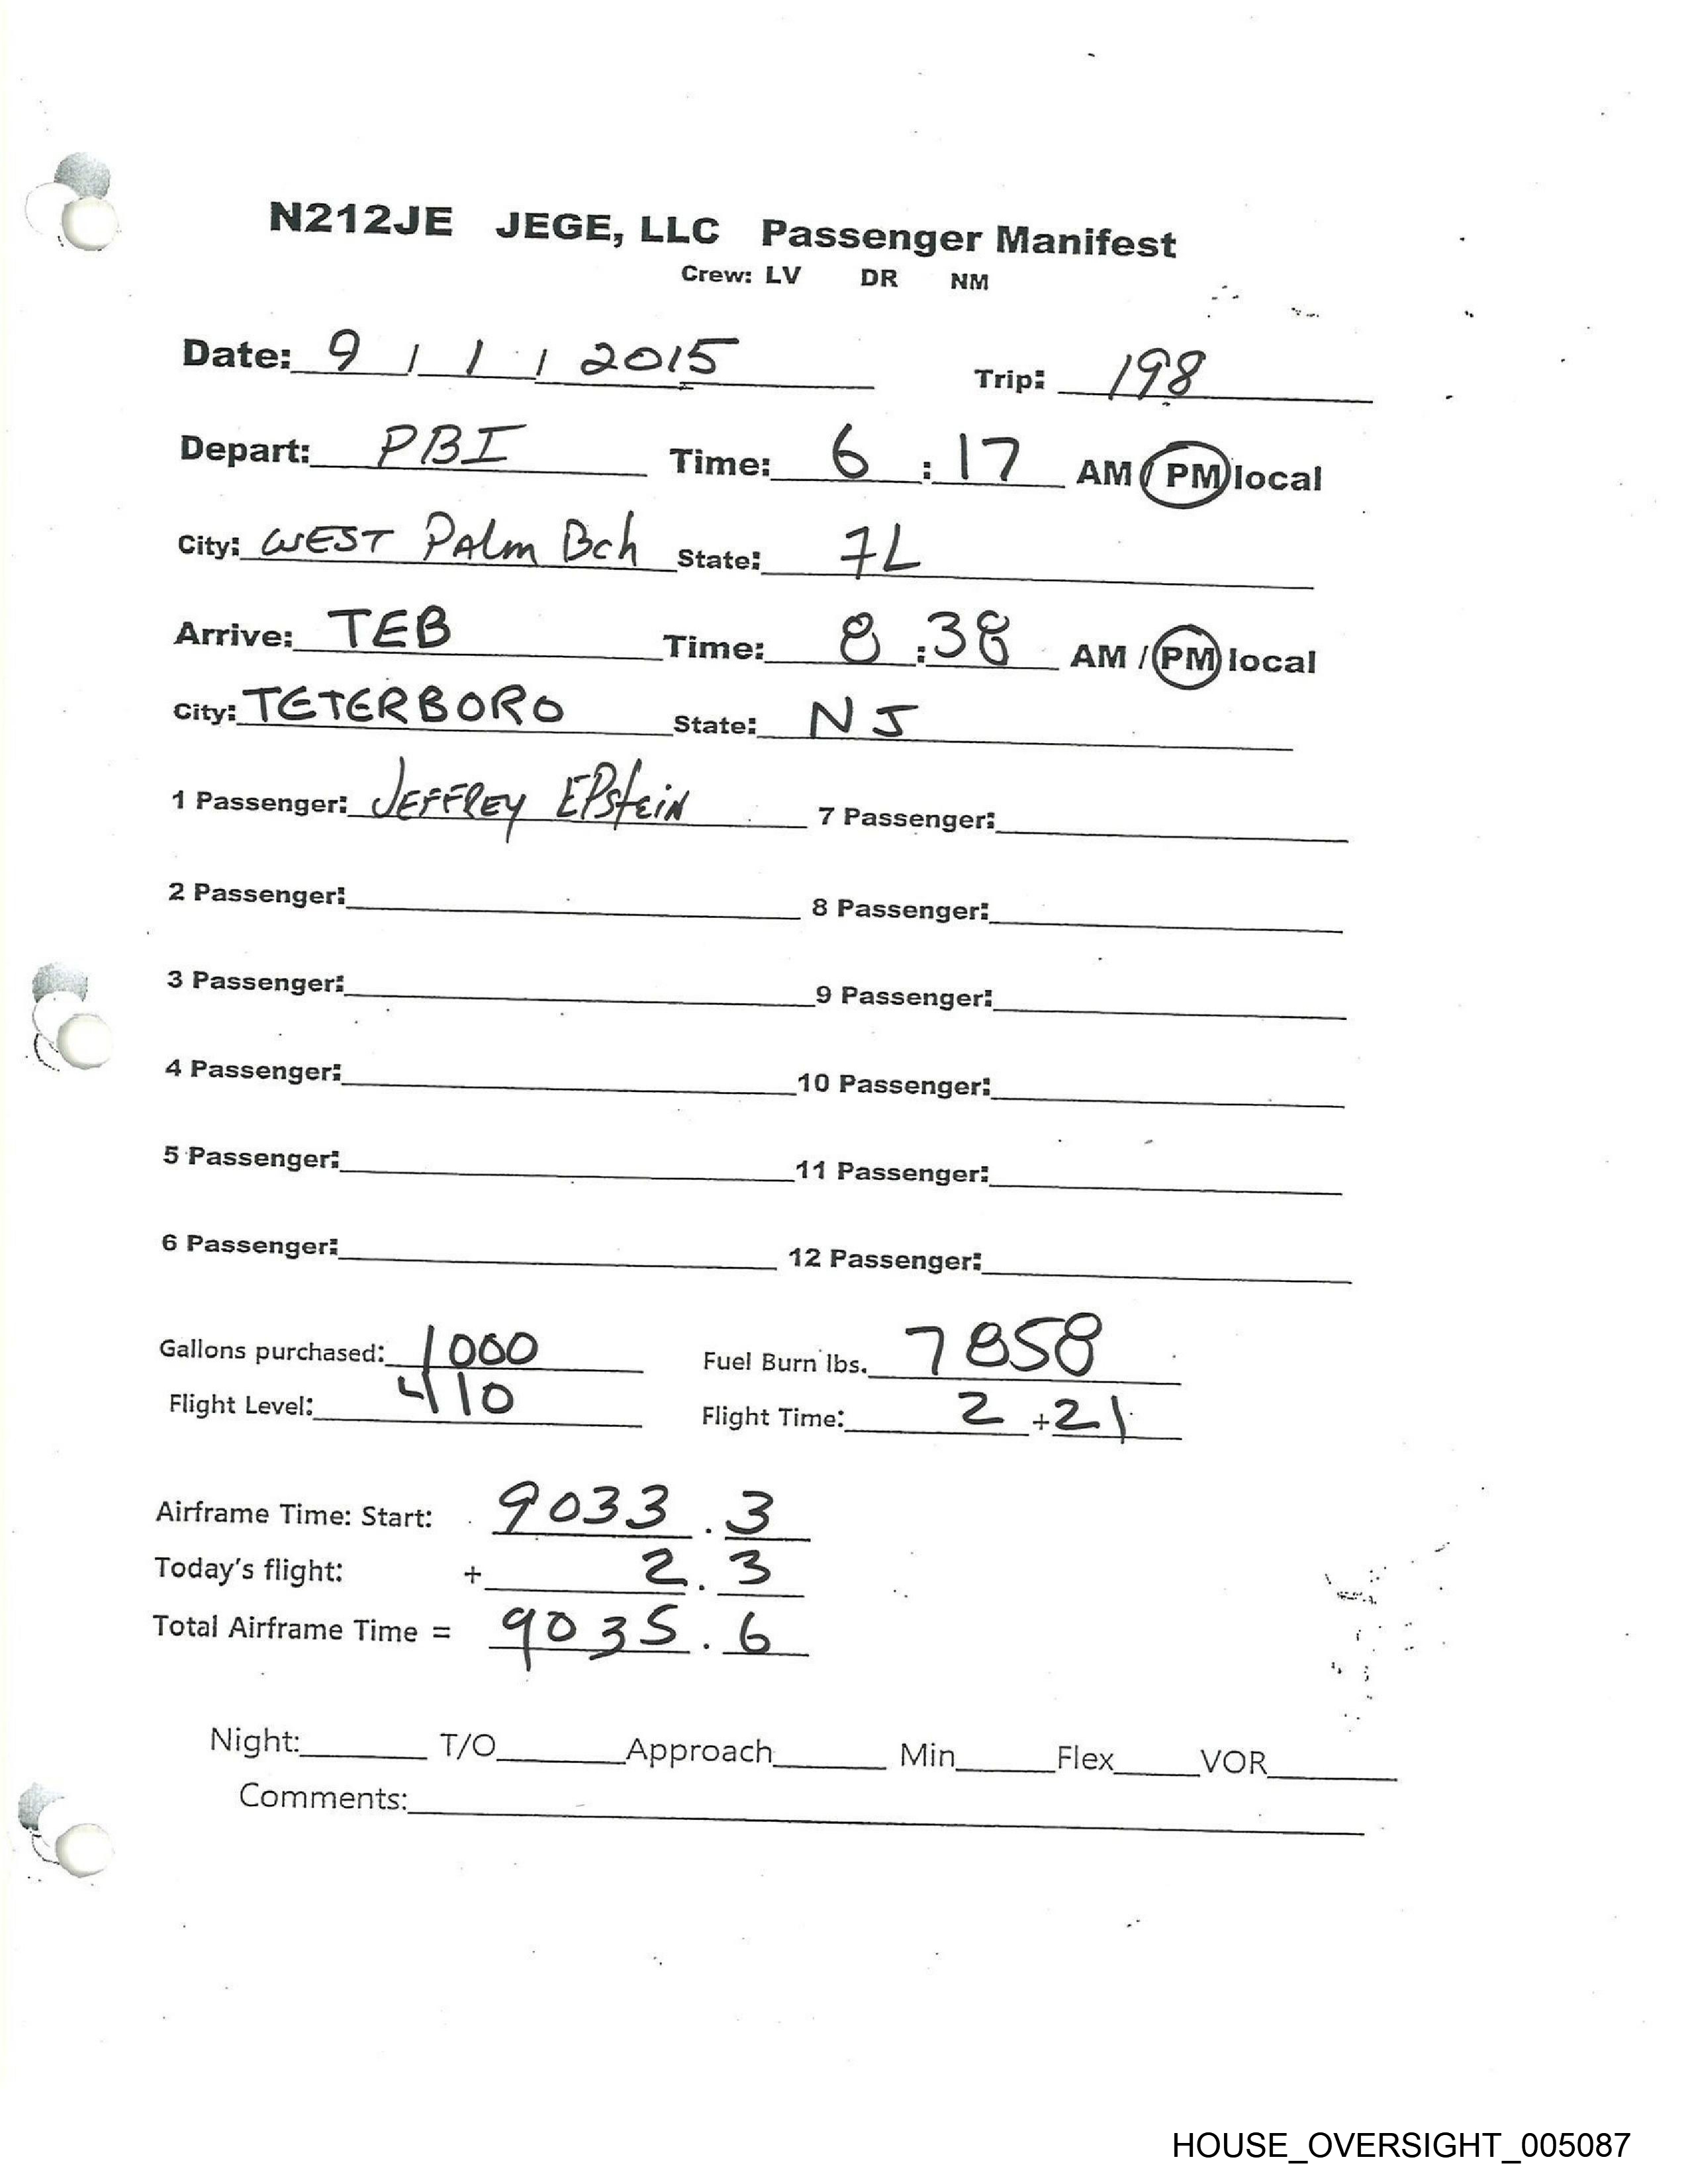 N212JE JEGE, LLC Passenger Manifest
Crew: LV DR NM
Date: 9 / 1 / 2015 Trip: 198
Depart: PBI Time: 6 : 17 AM / PM local
City: WEST PAlm Bch State: FL
Arrive: TEB Time: 8 : 38 AM / PM local
City: TETERBORO State: NJ
1 Passenger: JEFFREY EPstEiN 7 Passenger:
2 Passenger: 8 Passenger:
3 Passenger: 9 Passenger:
4 Passenger: 10 Passenger:
5 Passenger: 11 Passenger:
6 Passenger: 12 Passenger:
Gallons purchased: 1000 Fuel Burn lbs. 7858
Flight Level: 410 Flight Time: 2 + 21
Airframe Time: Start: 9033 . 3
Today's flight: + 2 . 3
Total Airframe Time = 9035 . 6
Night: T/O Approach Min Flex VOR
Comments:
HOUSE_OVERSIGHT_005087